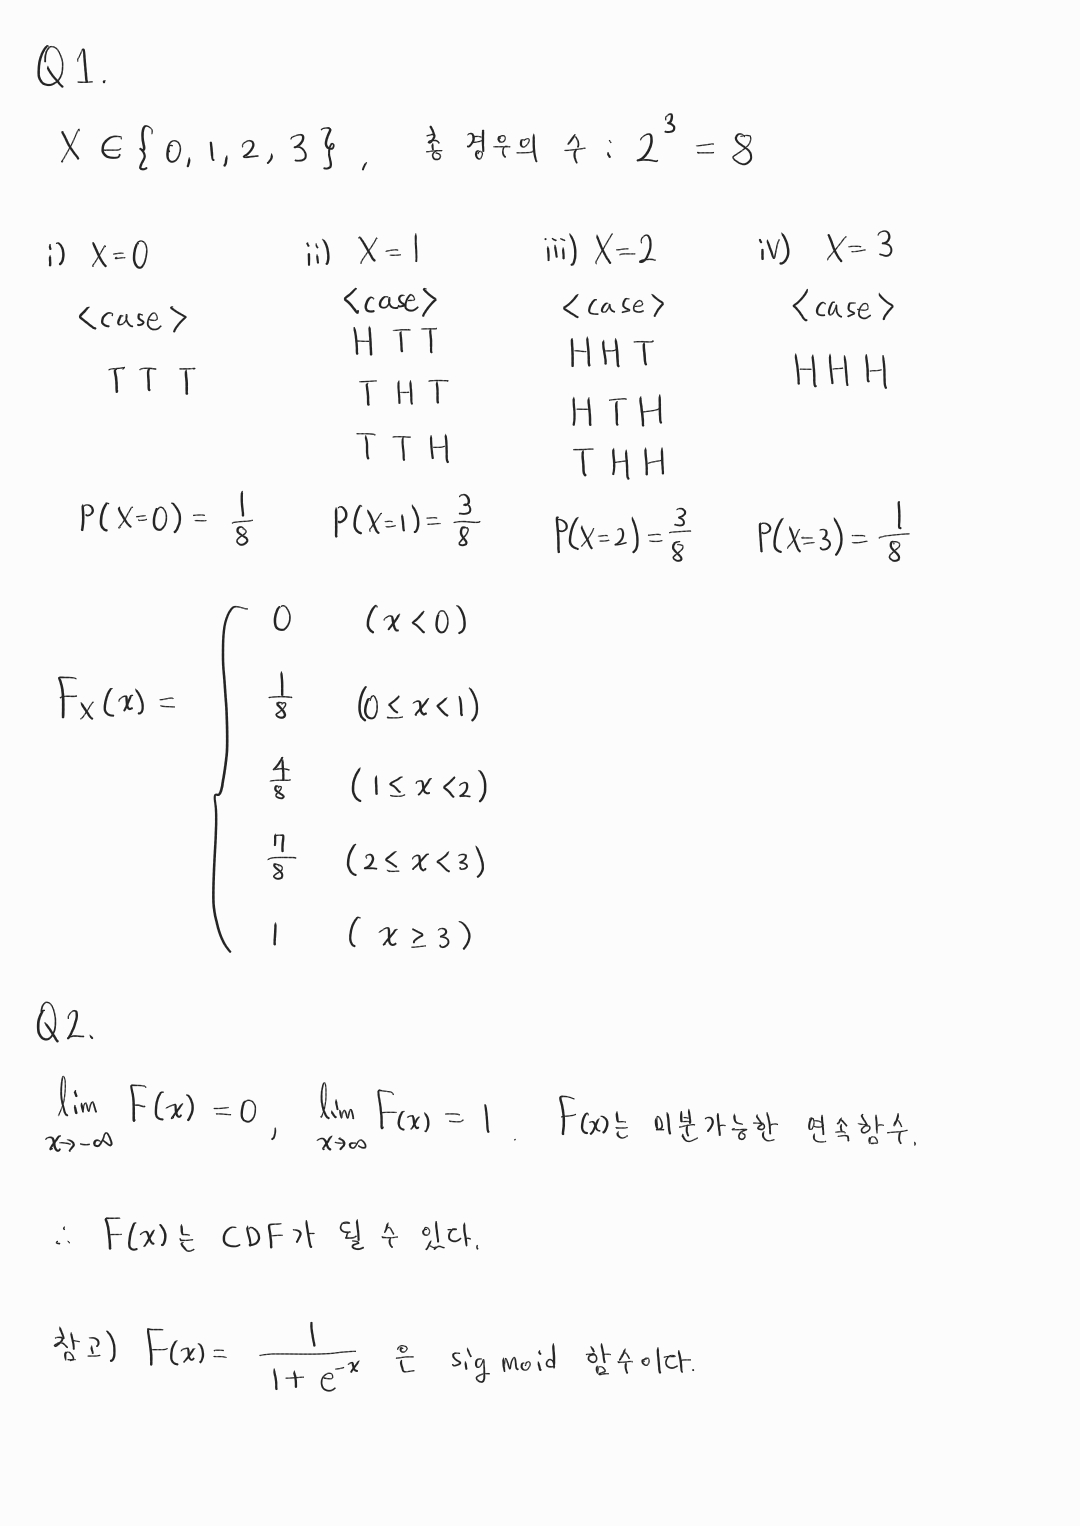 Q1.
X ∈ {0, 1, 2, 3}, 총 경우의 수 : 2³ = 8
i) X=0
<case>
T T T
P(X=0) = 1/8
ii) X=1
<case>
H T T
T H T
T T H
P(X=1) = 3/8
iii) X=2
<case>
H H T
H T H
T H H
P(X=2) = 3/8
iv) X=3
<case>
H H H
P(X=3) = 1/8
F_X(x) = {
0 (x<0)
1/8 (0≤x<1)
4/8 (1≤x<2)
7/8 (2≤x<3)
1 (x≥3)
Q2.
lim_{x→-∞} F(x) = 0, lim_{x→∞} F(x) = 1. F(x)는 미분가능한 연속함수.
∴ F(x)는 CDF가 될 수 있다.
참고) F(x) = 1/(1+e^{-x}) 은 sigmoid 함수이다.